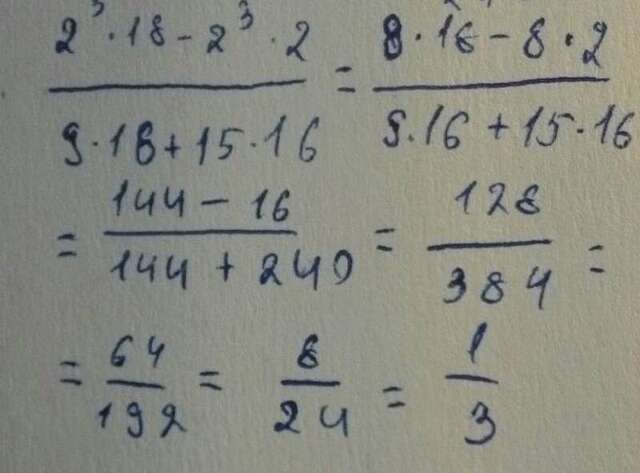 2³·18-2³·2 / 9·16+15·16 = 8·18-8·2 / 9·16+15·16
= 144-16 / 144+240 = 128 / 384 =
= 64/192 = 8/24 = 1/3